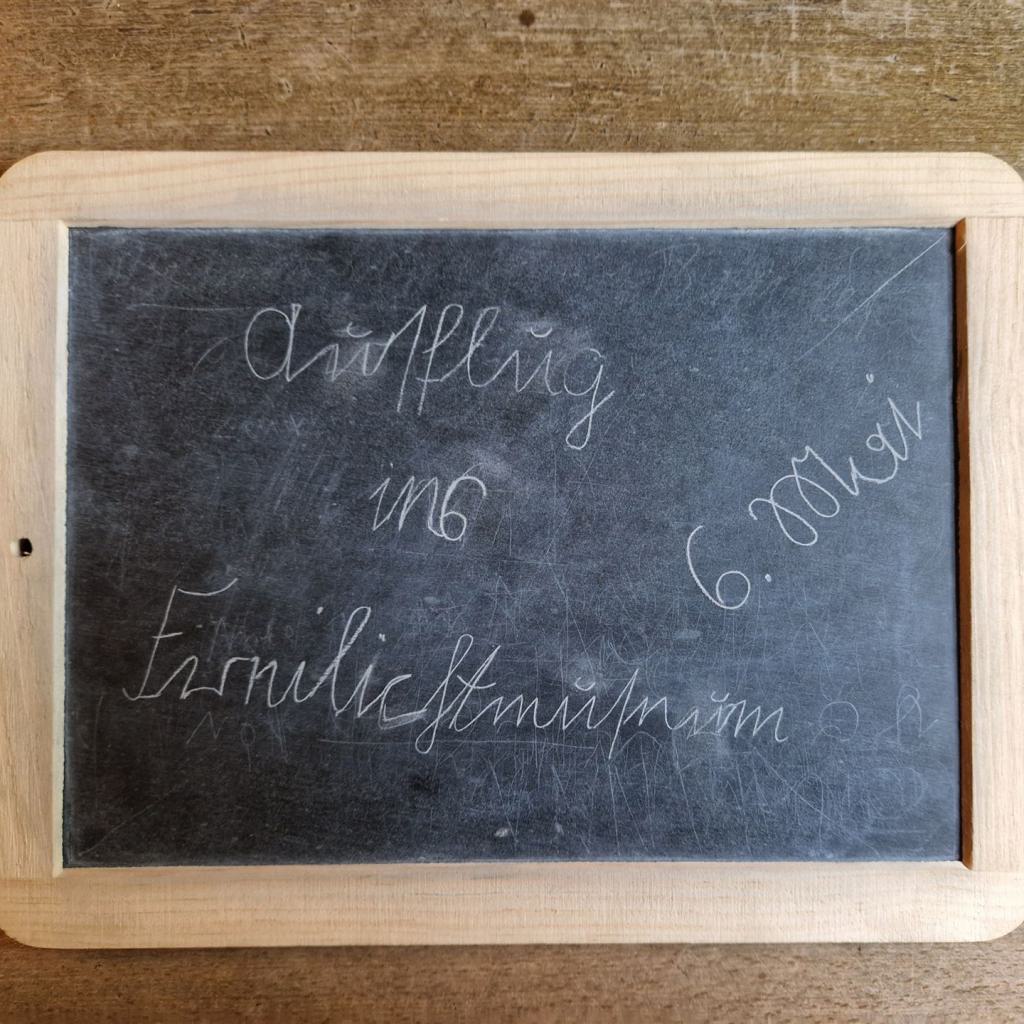 Ausflug
ins
6. Mai
Freilichtmuseum